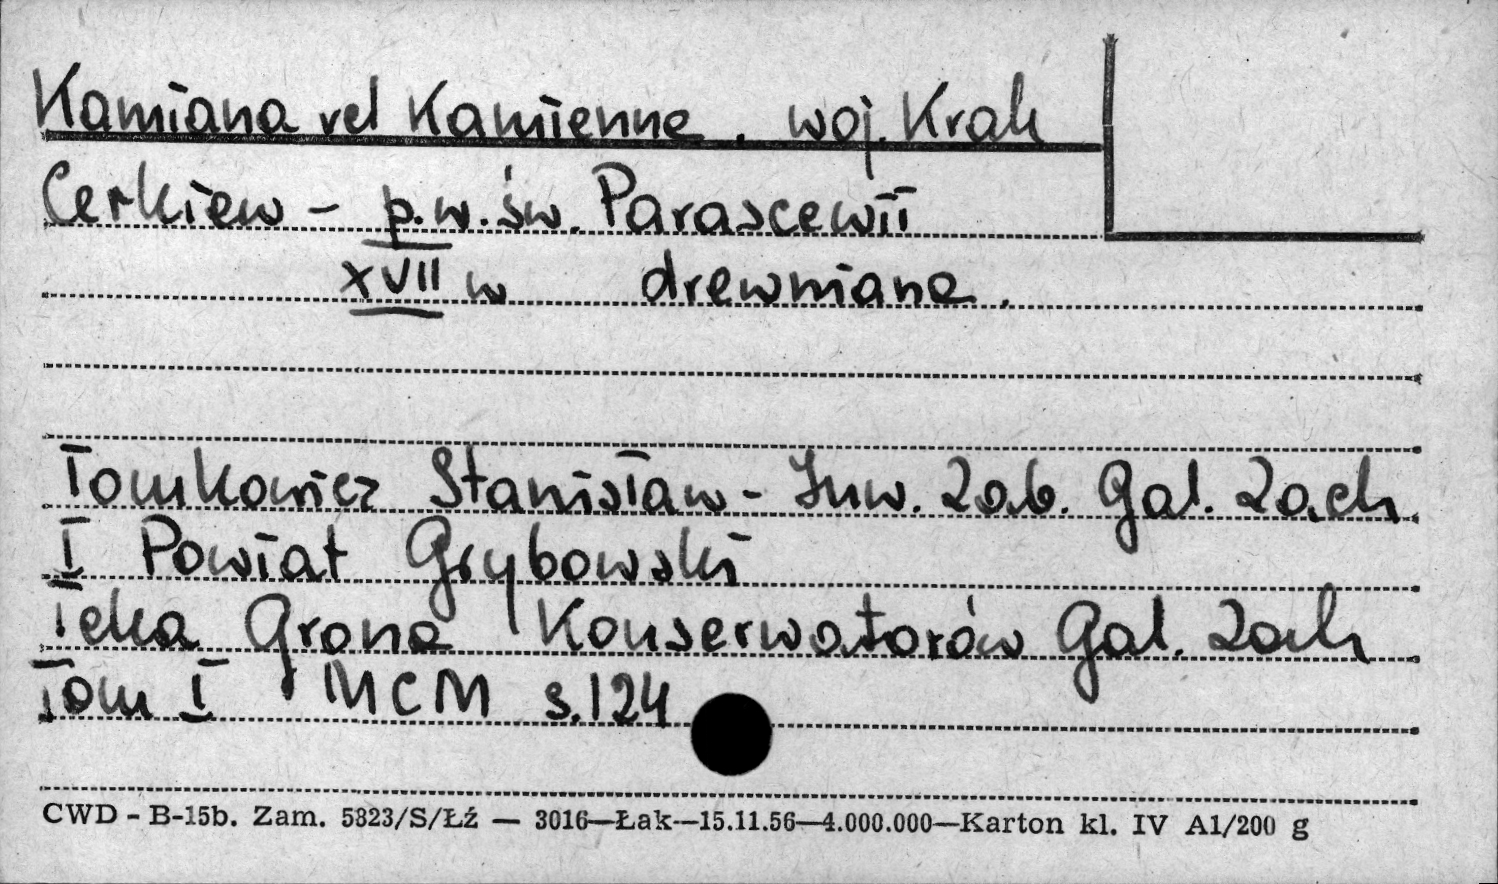 Kamiana vel Kamienne. woj. Krak
Cerkiew - p.w. św. Parascewii
XVII w drewniana.
Tomkowicz Stanisław - Inw. Zab. Gal. Zach
I Powiat Grybowski
Teka Grona Konserwatorów Gal. Zach
Tom I MCM s. 124
CWD - B-15b. Zam. 5823/S/Łź — 3016—Łak—15.11.56—4.000.000—Karton kl. IV A1/200 g